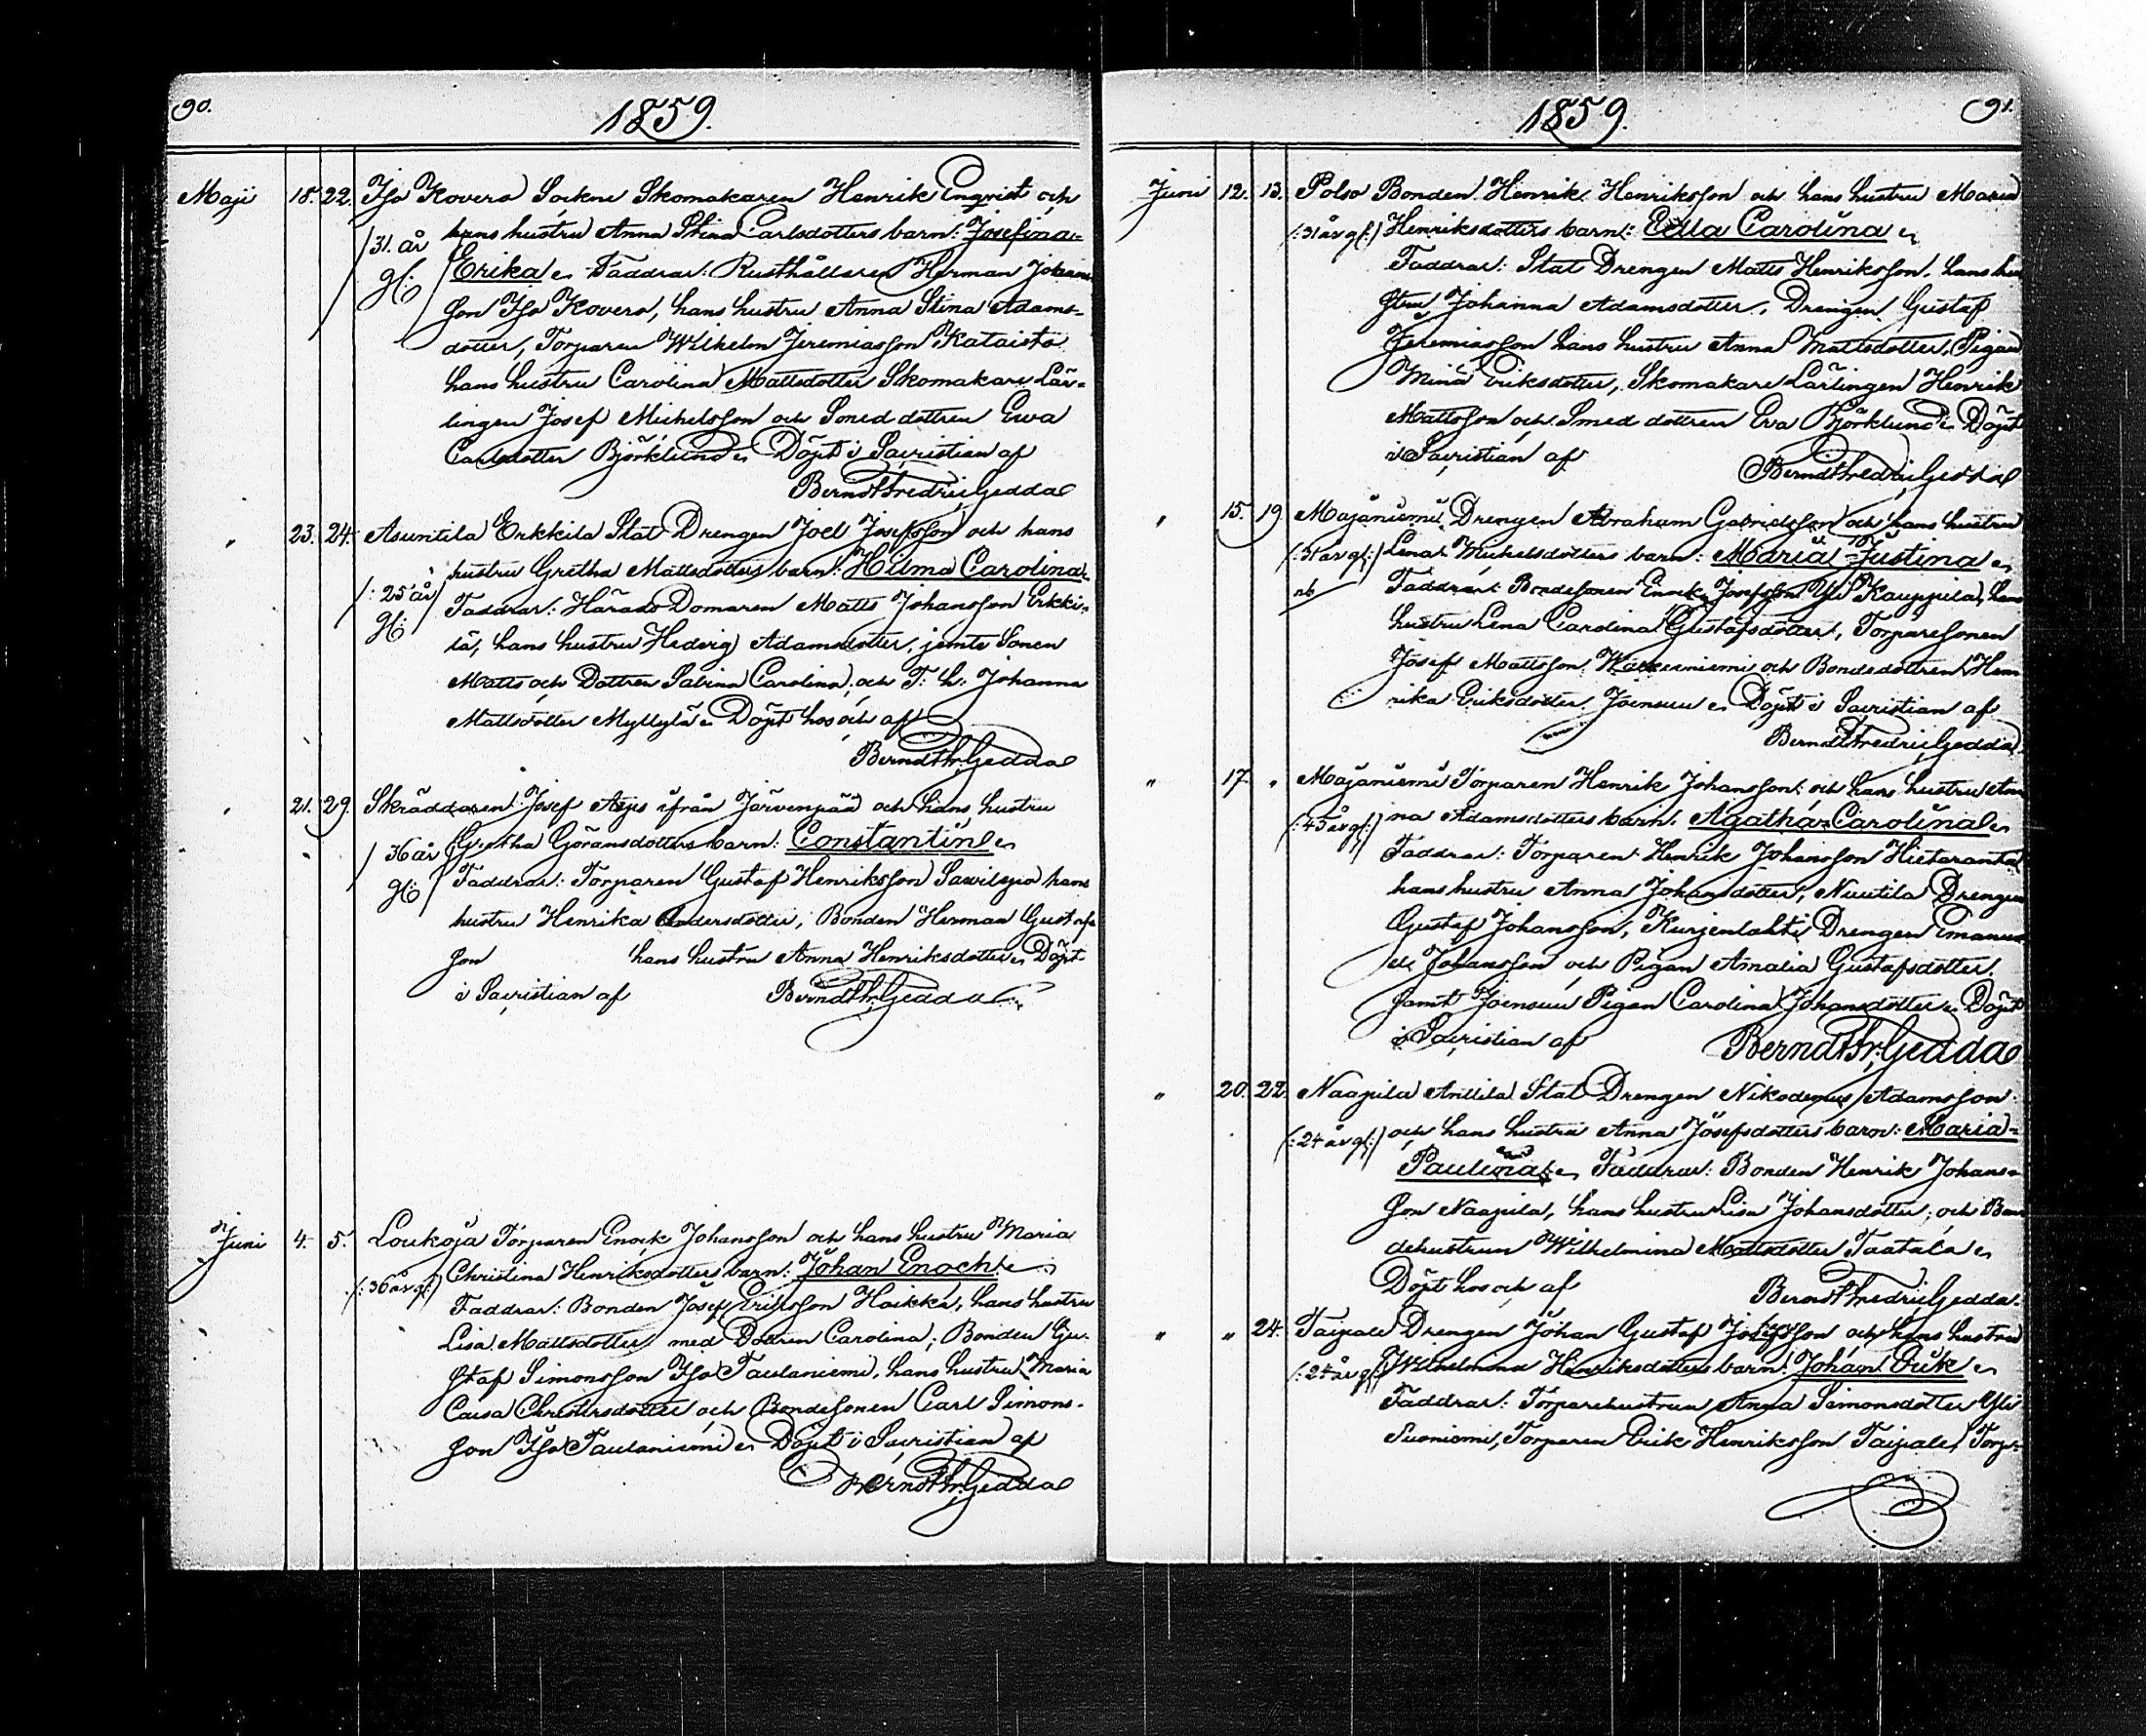 90.
1859.
Maji 18. 22. Iso Kovero Sockne Skomakaren Henrik Enqvist och
hans hustru Anna Stina Carlsdotters barn: Josefina
/31. år gl:/ Erika Faddrar: Rusthållaren Herman Johans
son Iso Kovero, hans hustru Anna Stina Adams-
dotter, Torparen Wilhelm Jeremiasson Kataisto
hans hustru Carolina Mattsdotter Skomakare Lär-
lingen Josef Michelsson och Smed dottren Ewa
Carlsdotter Björklund Döpt i Sacristian af
Berndt Fredric Gedda
" 23. 24. Asuntila Erkkila Stat Drengen Joel Josefsson och hans
hustru Gretha Mattsdotters barn: Hilma Carolina
/: 25 år gl:/ Faddrar: Härads Domaren Matts Johansson Erkki-
lä, hans hustru Hedvig Adamsdotter, jemte Sonen
Matts och Dottren Sabina Carolina, och T: h. Johanna
Mattsdotter Myllylä Döpt hos och af
Berndt Fr: Gedda
" 21. 29. Skräddaren Josef ifrån Järvenpää och hans hustru
/ 36 år gl:/ Gretha Göransdotters barn: Constantin
Faddrar: Torparen Gustaf Henriksson hans
hustru Henrika Andersdotter, Bonden Herman Gustafs
son hans hustru Anna Henriksdotter Döpt
i Sacristian af Berndt Fr: Gedda
Juni 4. 5. Loukoja Torparen Enock Johansson och hans hustru Maria
/: 36 år gl:/ Christina Henriksdotters barn: Johan Enoch
Faddrar: Bonden Josef Eriksson Hoikka, hans hustru
Lisa Mattsdotter med Dottren Carolina; Bonden Gu-
staf Simonsson Iso Taulaniemi, hans hustru Maria
Caisa Christersdotter och Bondesonen Carl Simons-
son Iso Taulaniemi Döpt i Sacristian af
Berndt Fr: Gedda
1859.
91.
Juni 12. 13. Polso Bonden Henrik Henriksson och hans hustru Maria
(: 31 år gl:) Henriksdotters barn: Edla Carolina
Faddrar: Stat Drengen Matts Henriksson, hans hu
stru Johanna Adamsdotter, Drengen Gustaf
Jeremiasson hans hustru Anna Mattsdotter, Pigan
Mina Eriksdotter, Skomakare Lärlingen Henrik
Mattsson och Smed dottren Eva Björklund Döpt
i Sacristian af Berndt Fredric Gedda
" 15. 19. Majaniemi Drengen Abraham Gabrielsson och hans hustru
(: 31 år gl:) Lena Michelsdotters barn: Maria Justina
nb Faddrar: Bondesonen Enock Josefsson Yli Kauppila, hans
hustru Lena Carolina Gustafsdotter, Torparesonen
Josef Mattsson och Bondedottren Hen
rika Eriksdotter Joensuu Döpt i Sacristian af
Berndt Fredric Gedda
" 17. " Majaniemi Torparen Henrik Johansson och hans hustru An
(: 45 år gl:) na Adamsdotters barn: Agatha Carolina
Faddrar: Torparen Henrik Johansson Hietaranta
hans hustru Anna Johansdotter, Nuutila Drengen
Gustaf Johansson, Kurjenlahti Drengen Emanu
el Johansson och Pigan Amalia Gustafsdotter
samt Joensuu Pigan Carolina Johansdotter Döpt
i Sacristian af Berndt Fr: Gedda
" 20. 22. Naapila Anttila Stat Drengen Nikodemus Adamsson
(: 24 år gl:) och hans hustru Anna Josefsdotters barn: Maria-
Paulina Faddrar: Bonden Henrik Johans-
son Naapila, hans hustru Lisa Johansdotter, och Bon
dehustrun Wilhelmina Mattsdotter Taatala
Döpt hos och af Berndt Fredric Gedda.
" " 24. Taipale Drengen Johan Gustaf Josefsson och hans hustru
(: 24 år gl:) Wilhelmina Henriksdotters barn: Johan Erik
Faddrar: Torparehustrun Anna Simonsdotter Yli
Suoniemi, Torparen Erik Henriksson Taipale, Torp-